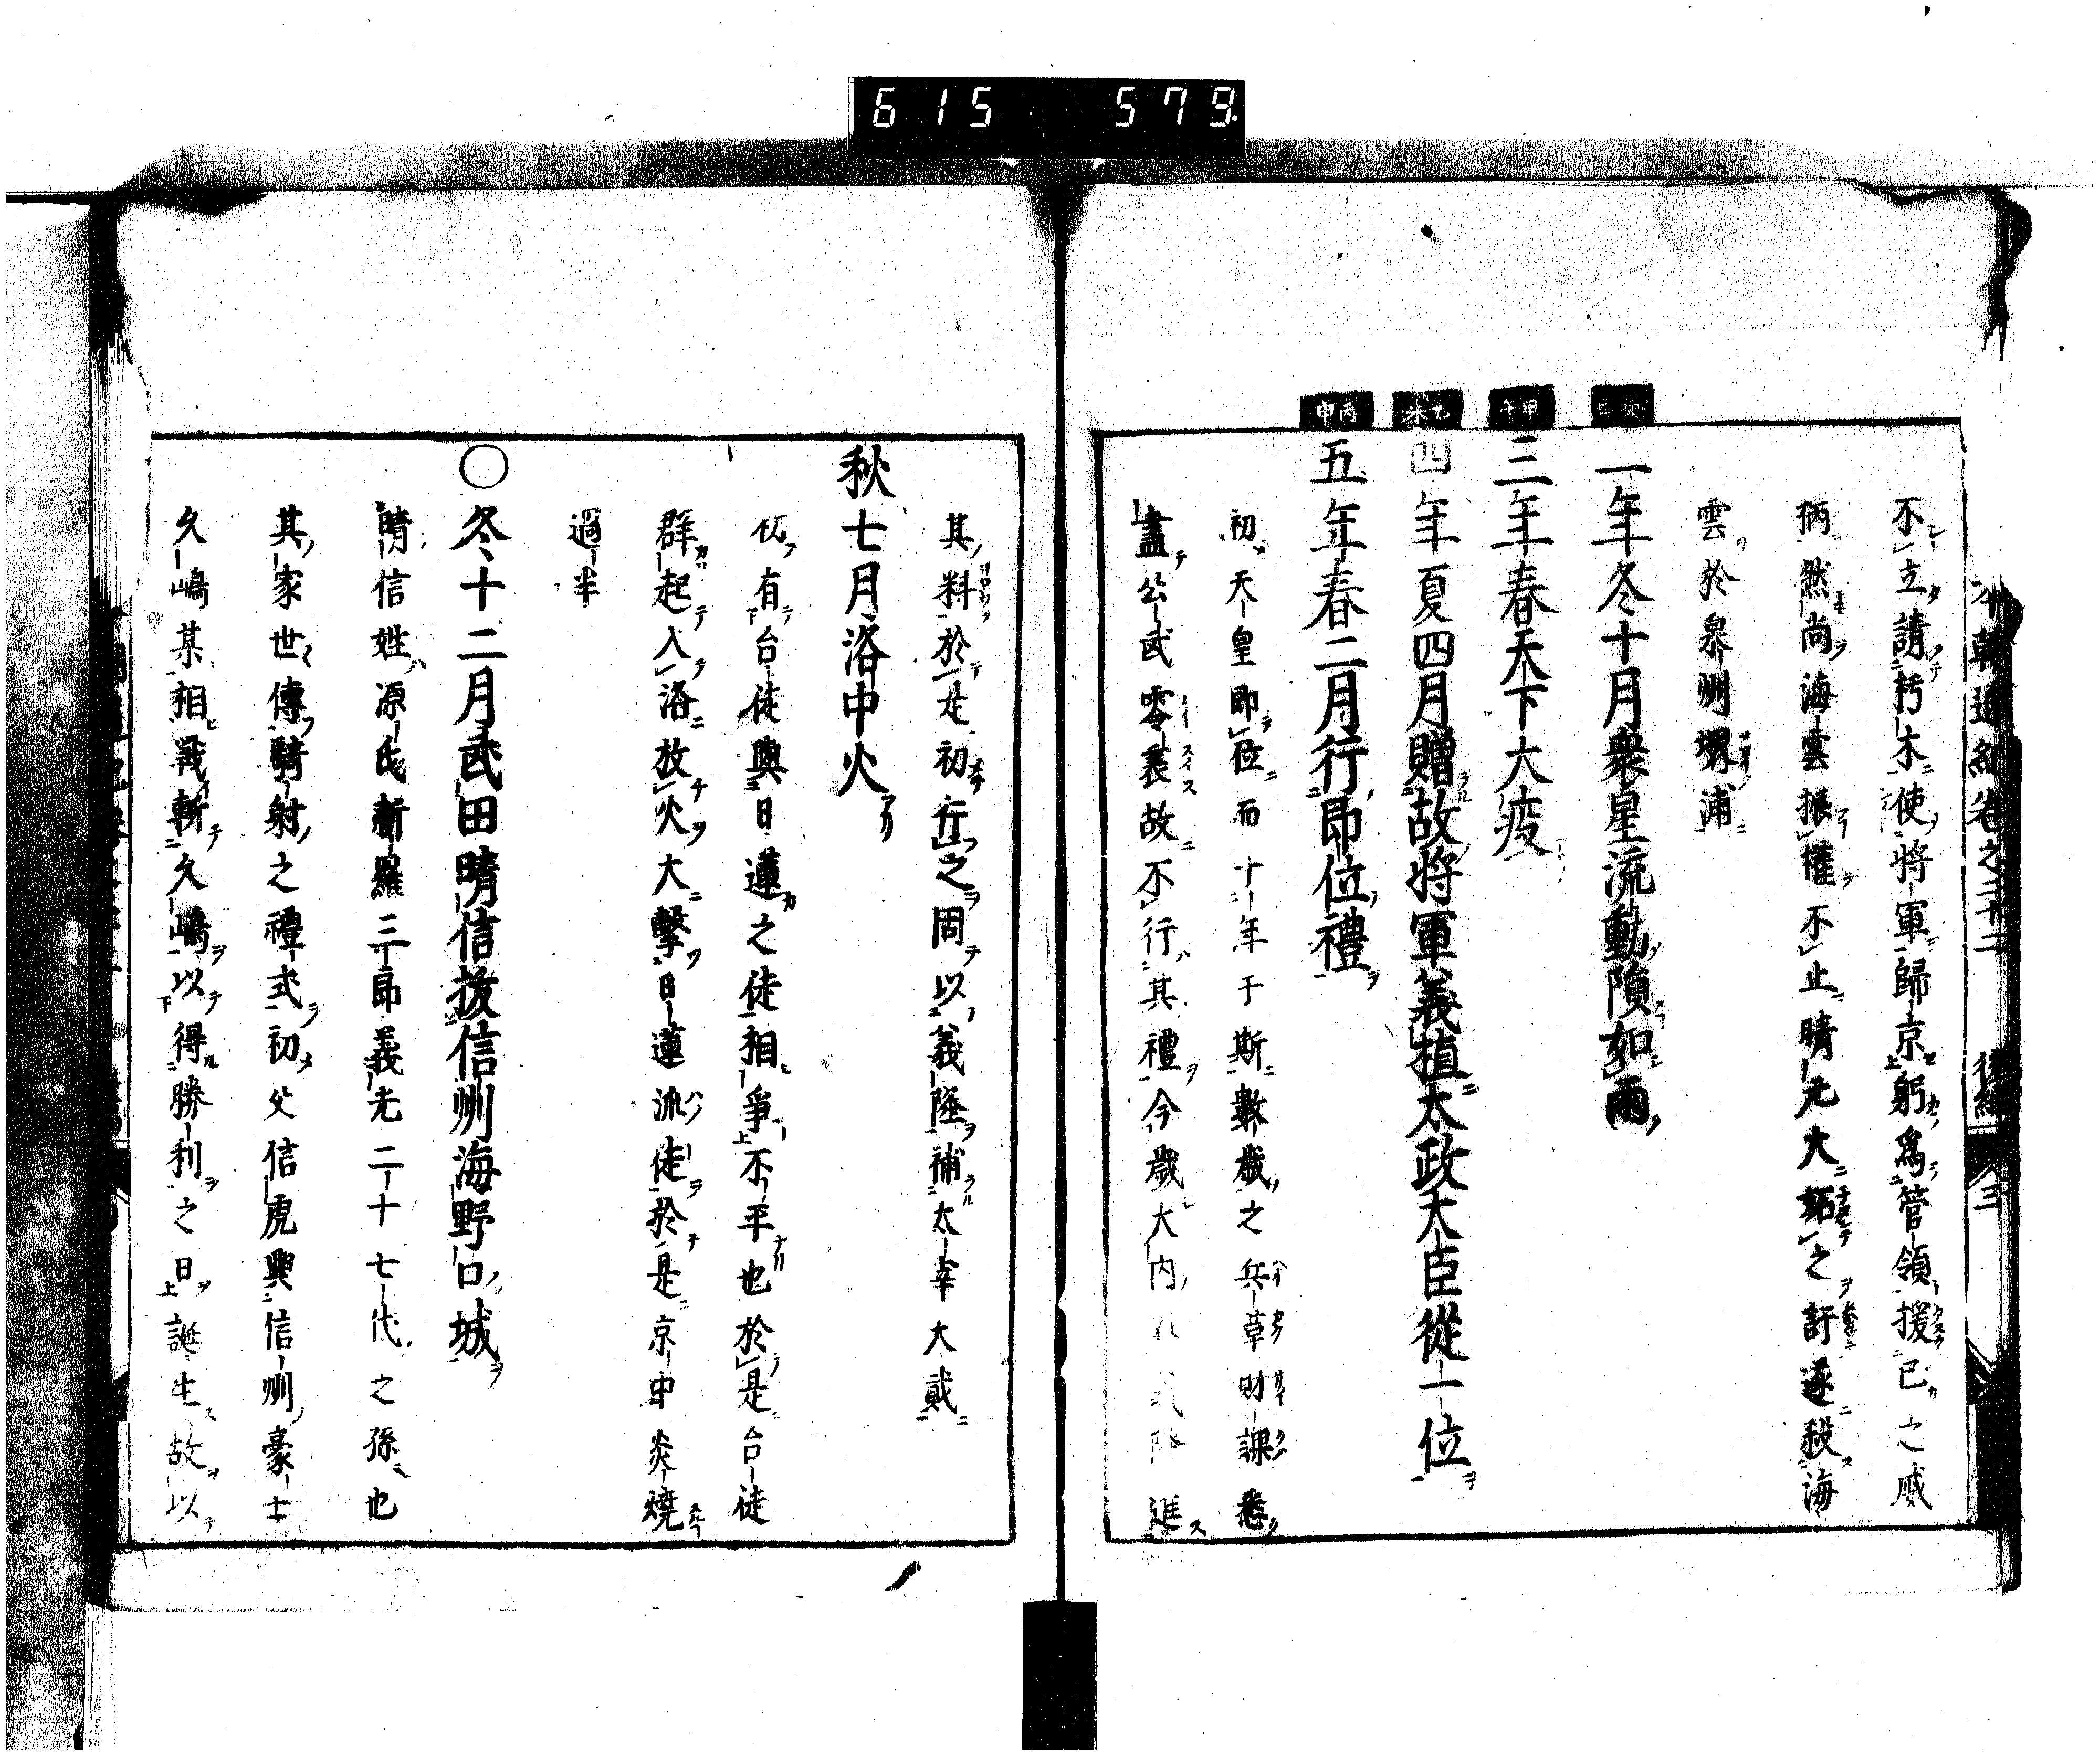 615 579
本朝通紀卷之二十二 後編 三
不立請朽木使將軍歸京躬爲管領援已之威
柄然尚海雲振權不止晴元大妬之訐遂殺海
雲於泉州堺浦
癸巳
二年冬十月衆星流動隕如雨
甲午
三年春天下大疫
乙未
四年夏四月贈故將軍義植太政大臣從一位
丙申
五年春二月行即位禮
初天皇即位而十年于斯數歲之兵革財課悉
盡公武零丧故不行其禮今歲大内 進
其料於是初行之因以義隆補太宰大貳
秋七月洛中火
仍有台徒與日蓮之徒相爭不平也於是台徒
群起入洛放火大擊日蓮派徒於是京中炎燒
過半
○冬十二月武田晴信拔信州海野口城
晴信姓源氏新羅三郎義光二十七代之孫也
其家世傳騎射之禮式初父信虎與信州豪士
久嶋某相戰斬久嶋以得勝利之日誕生故以